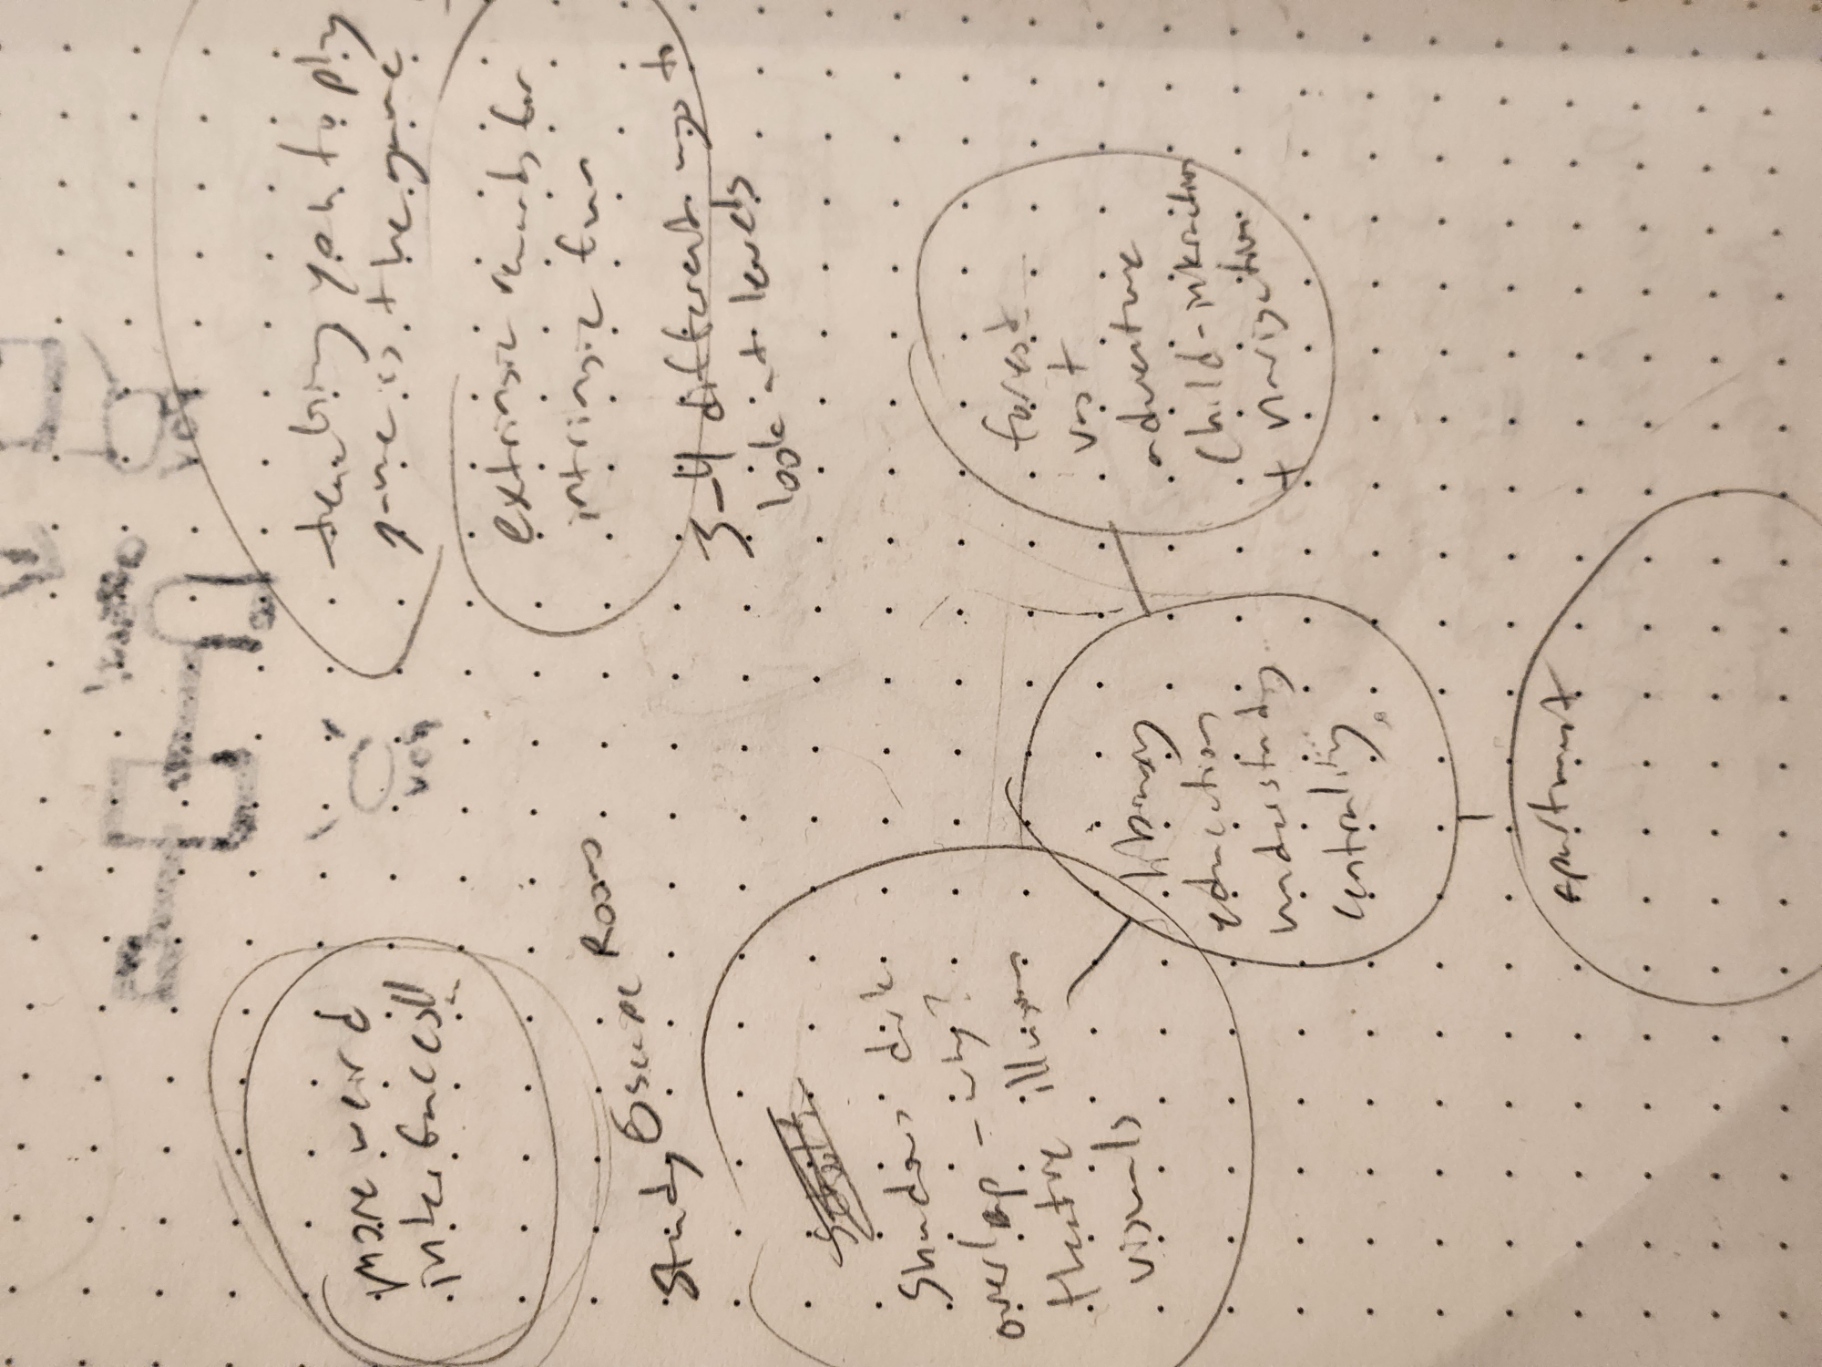 teaching you to play
game is the game
extrinsic rewards for
intrinsic fun
3-4 different ways to
look at levels
more weird
interfaces!!
Study Escape Room
Shadows dark
overlap - why?
theatre illusion
visuals
library
education
understanding
centrality
forest
vast
adventure
child-interaction
+ navigation
apartment